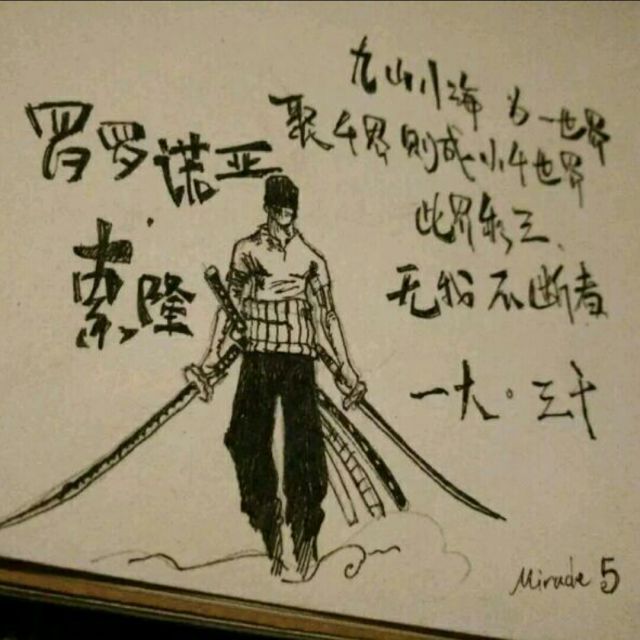 罗罗诺亚
索隆
九山八海 为一世界
聚千界则成小千世界
此界乘三、
无我不断者
一大·三千
Miracle 5